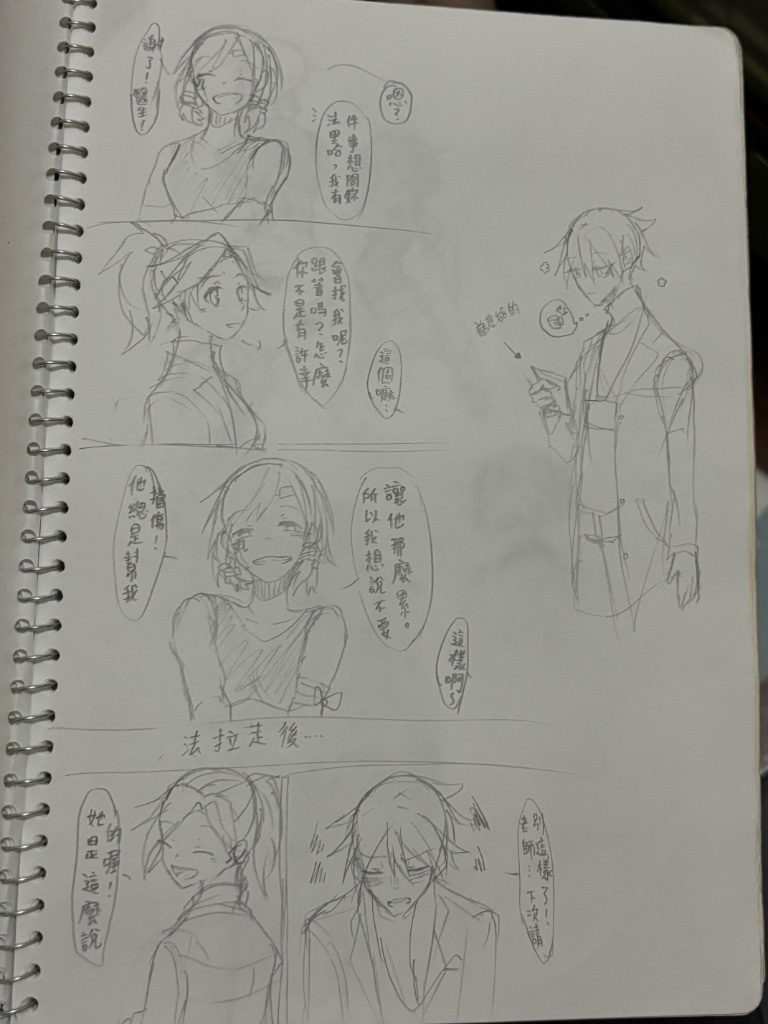 謝了！醫生！
嗯？
法里哈，我有
件事想問妳
你不是有許幸
跟著嗎？怎麼
會找我呢？
這個嘛…
他總是幫我
擋傷！
所以我想說不要
讓他那麼累。
這樣啊～
法拉走後…
她是這麼說
的喔！
老師…下次請
別這樣了！